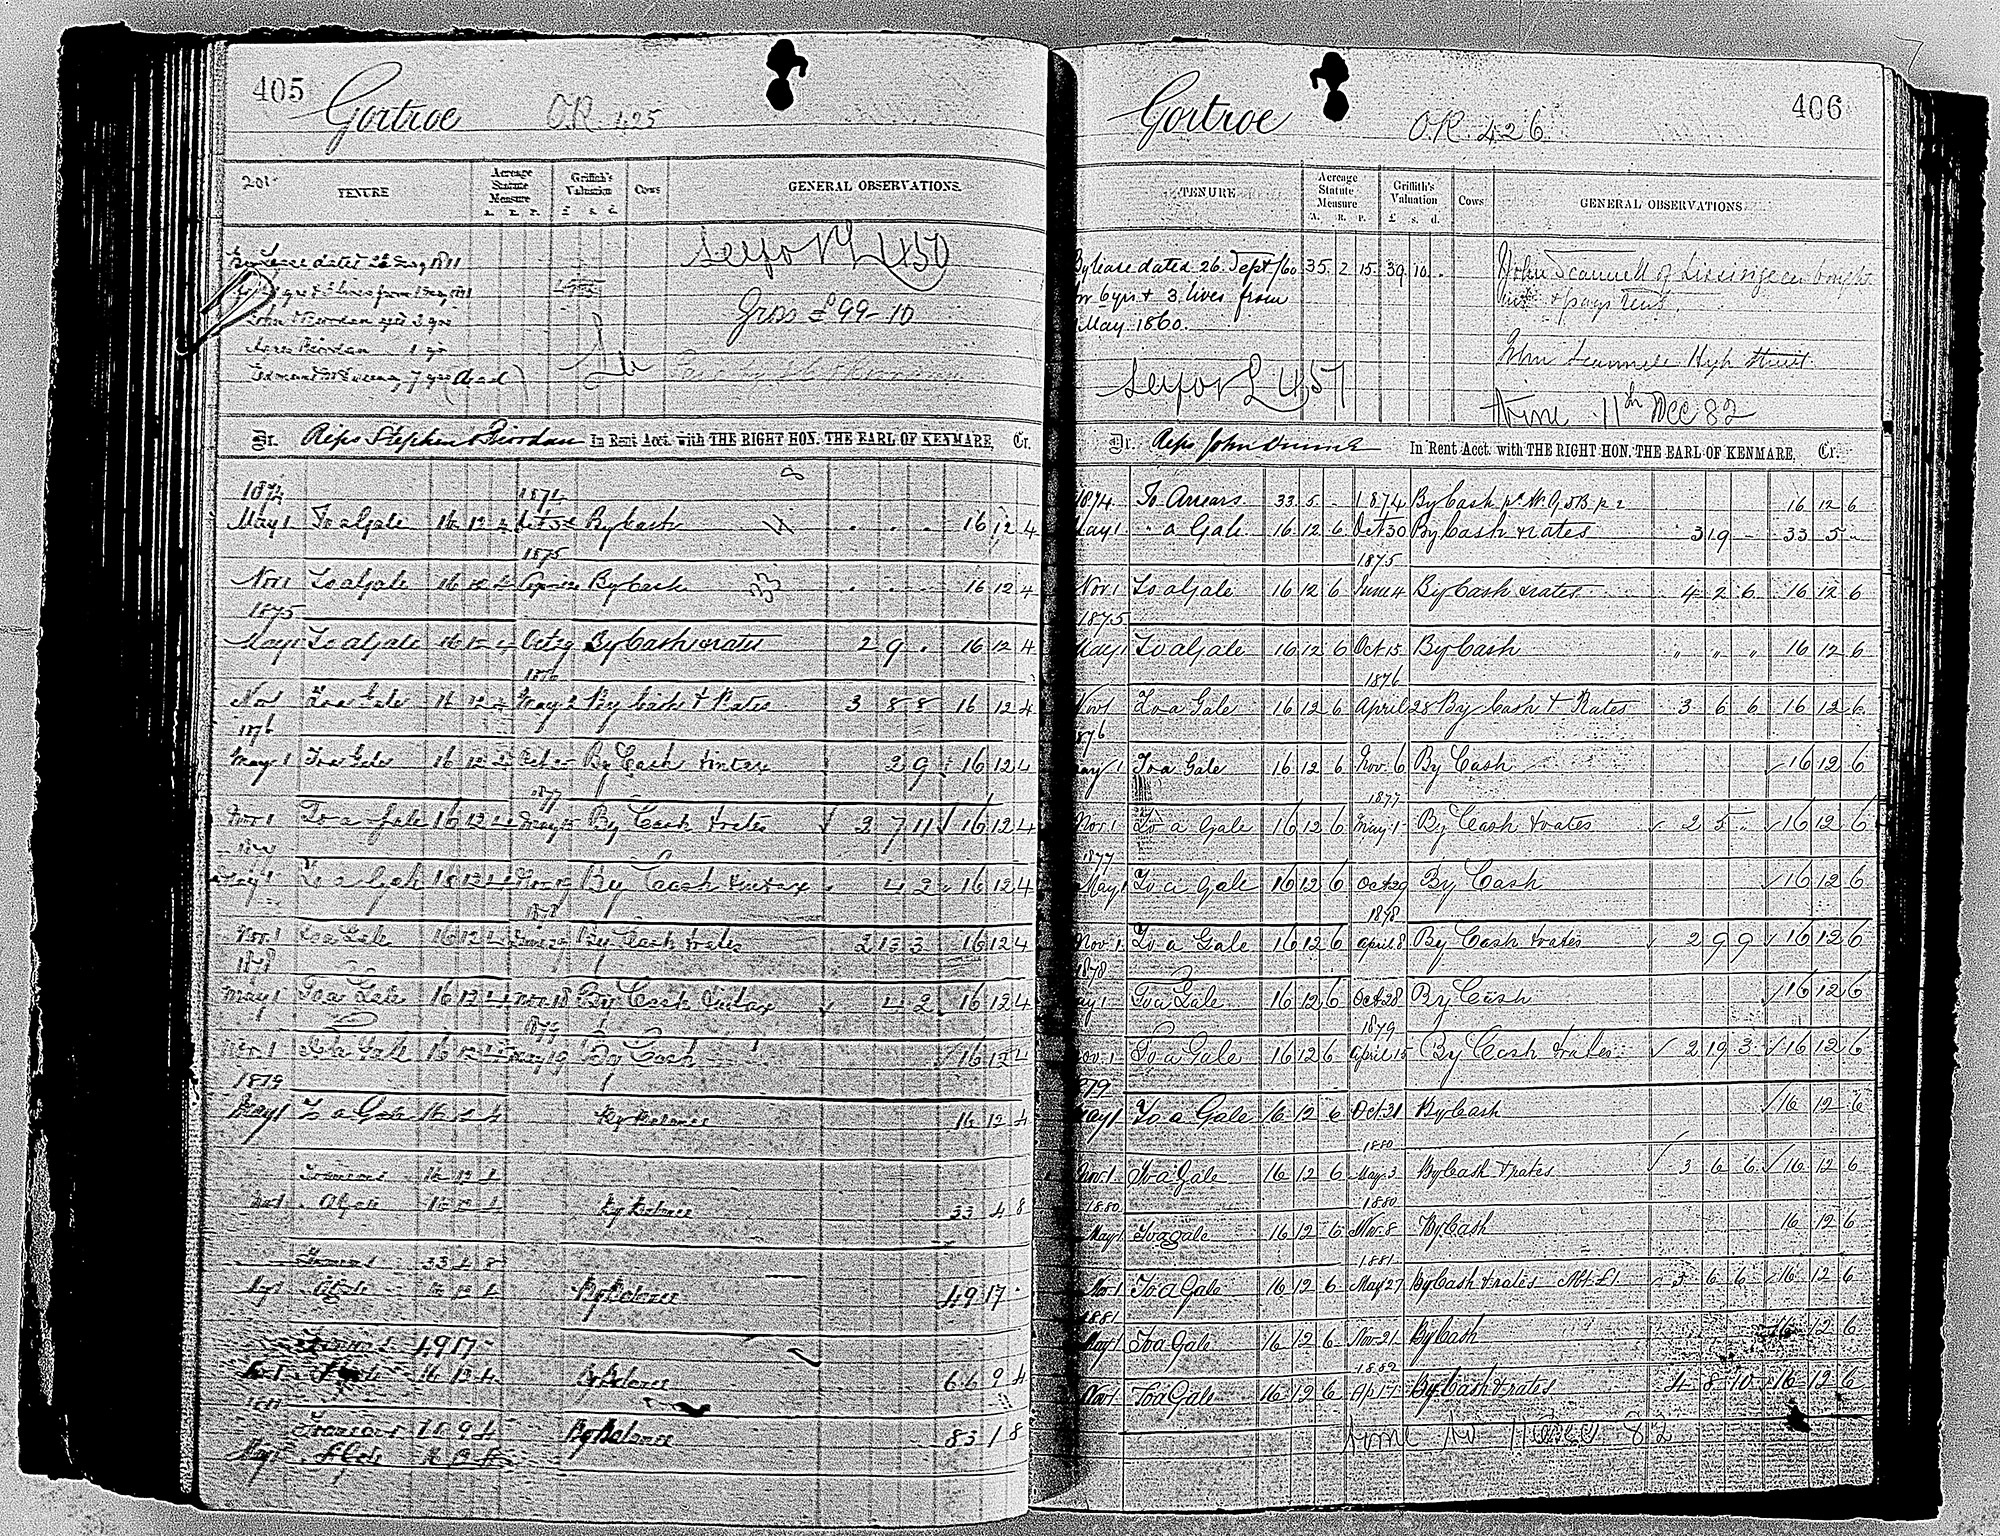 405
Gortroe O.R. 425
201
TENURE Acreage Statute Measure A. R. P. Griffith's Valuation £ s. d. Cows GENERAL OBSERVATIONS.
By Lease dated
Gross £99-10
John Riordan aged 3 yrs
Riordan 1 yr
7 yrs (dead)
Dr. Reps Stephen Riordan In Rent Acct. with THE RIGHT HON. THE EARL OF KENMARE, Cr.
1874 1874
May 1 To a Gale 16 12 4 By Cash 16 12 4
1875
Nov 1 To a Gale 16 12 4 By Cash 16 12 4
1875
May 1 To a Gale 16 12 4 Oct 29 By Cash & rates 2 9 . 16 12 4
1876
Nov 1 To a Gale 16 12 4 May 2 By Cash & Rates 3 8 8 16 12 4
1876
May 1 To a Gale 16 12 4 By Cash 2 9 16 12 4
1877
Nov 1 To a Gale 16 12 4 May By Cash & rates 2 7 11 16 12 4
1877
May 1 To a Gale 16 12 4 By Cash 4 2 16 12 4
1878
Nov. 1 To a Gale 16 12 4 By Cash & rates 2 13 3 16 12 4
1878
May 1 To a Gale 16 12 4 Nov 18 By Cash 4 2 16 12 4
1879
Nov. 1 To a Gale 16 12 4 May 19 By Cash 16 12 4
1879
May 1 To a Gale 16 12 4 By Balance 16 12 4
To arrears 16 12 4
Nov 1 A Gale 16 12 4 By Balance 33 4 8
To arrears 33 4 8
May 1 A Gale 16 12 4 By Balance 49 17 .
To arrears 49 17 -
Nov 1 A Gale 16 12 4 By Balance 66 9 4
1881
To arrears 66 9 4 By Balance 83 1 8
May 1 A Gale 16 12 4
406
Gortroe O.R. 426
TENURE Acreage Statute Measure A. R. P. Griffith's Valuation £ s. d. Cows GENERAL OBSERVATIONS.
By lease dated 26. Sept /60 35. 2 15. 39. 10. . John Scannell of bought
for 6 yrs & 3 lives from int & pays rent.
May 1860.
John Scannell High Street
11th Dec 82
Dr. Reps John In Rent Acct. with THE RIGHT HON. THE EARL OF KENMARE, Cr.
1874. To Arrears 33. 5 - 1874 By Cash 16 12 6
May 1 " a Gale 16. 12 6 Oct 30 By Cash & rates 3 19 - 33 5 -
1875
Nov 1 To a Gale 16 12 6 June 4 By Cash & rates 4 2 6 16 12 6
1875
May 1 To a Gale 16 12 6 Oct 15 By Cash " " " 16 12 6
1876
Nov 1 To a Gale 16 12 6 April 28 By Cash & Rates 3 6 6 16 12 6
1876
May 1 To a Gale 16 12 6 Nov. 6 By Cash 16 12 6
1877
Nov 1 To a Gale 16 12 6 May 1 By Cash & rates 2 5 " 16 12 6
1877
May 1 To a Gale 16 12 6 Oct 29 By Cash 16 12 6
1878
Nov. 1 To a Gale 16 12 6 April 8 By Cash & rates 2 9 9 16 12 6
1878
May 1 To a Gale 16 12 6 Oct 28 By Cash 16 12 6
1879
Nov. 1 To a Gale 16 12 6 April 15 By Cash & rates 2 19 3 16 12 6
1879
May 1 To a Gale 16 12 6 Oct 21 By Cash 16 12 6
1880
Nov. 1 To a Gale 16 12 6 May 3 By Cash & rates 3 6 6 16 12 6
1880 1880
May 1 To a gale 16 12 6 Nov. 8 By Cash 16 12 6
1881
Nov 1 To a Gale 16 12 6 May 27 By Cash & rates 6 6 16 12 6
1881
May 1 To a Gale 16 12 6 Nov. 21 By Cash 16 12 6
1882
Nov 1 To a Gale 16 12 6 Ap 17 By Cash & rates 4 8 10 16 12 6
11 Dec 82